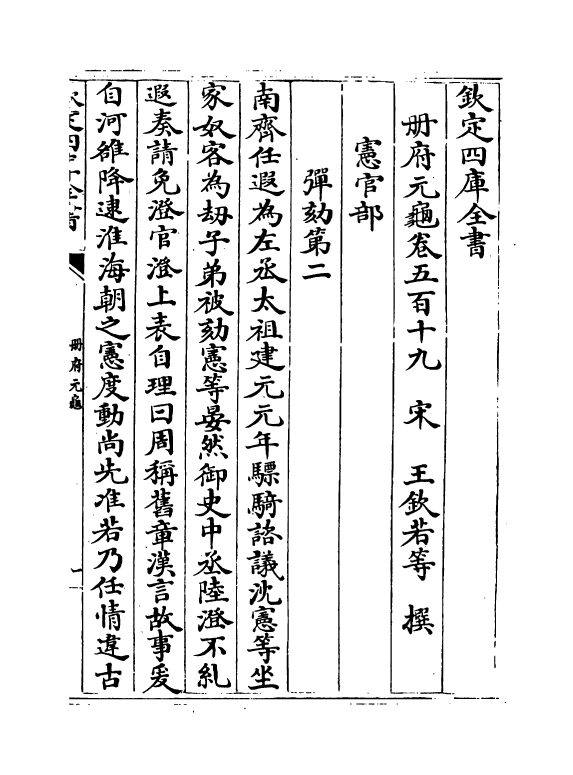 欽定四庫全書
册府元龜卷五百十九　宋　王欽若等　撰
憲官部
彈劾第二
南齊任遐為左丞太祖建元元年驃騎諮議沈憲等坐
家奴客為刼子弟被劾憲等晏然御史中丞陸澄不糺
遐奏請免澄官澄上表自理曰周稱舊章漢言故事爰
自河雒降逮淮海朝之憲度動尚先准若乃任情違古
册府元龜
一